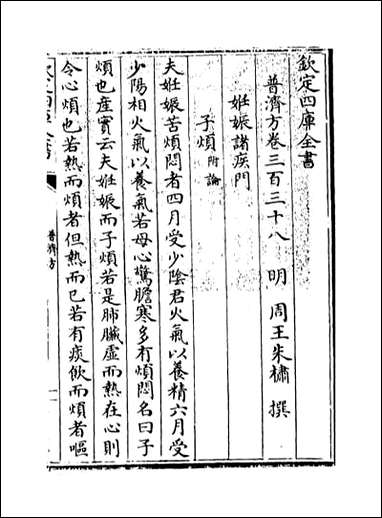 欽定四庫全書
普濟方卷三百三十八 明 周王朱橚 撰
妊娠諸疾門
子煩附論
夫妊娠苦煩悶者四月受少陰君火氣以養精六月受
少陽相火氣以養氣若母心驚膽寒多有煩悶名曰子
煩也産寳云夫妊娠而子煩若是肺臟虛而熱在心則
令心煩也若熱而煩者但熱而已若有痰飲而煩者嘔
普濟方